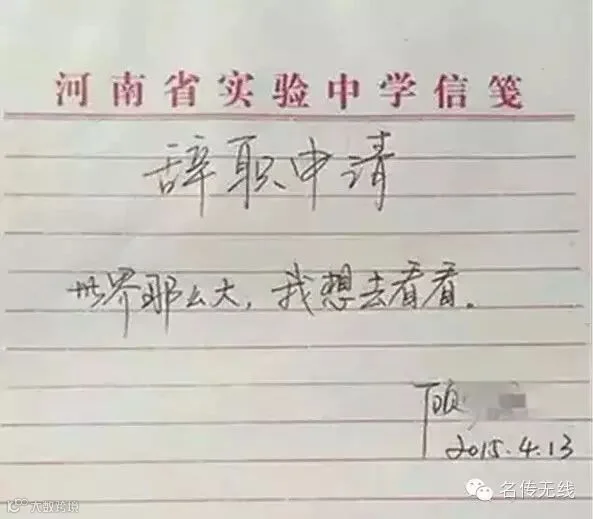 河南省实验中学信笺
辞职申请
世界那么大，我想去看看。
顾
2015.4.13
名传无线
大数跨境